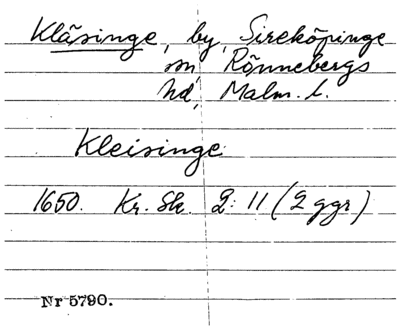 Kläsinge, by, Sireköpinge
sn, Rönnebergs
hd, Malm. l.
Kleisinge
1650. Kr. Sk. 2: 11 (2 ggr)
Nr 5790.